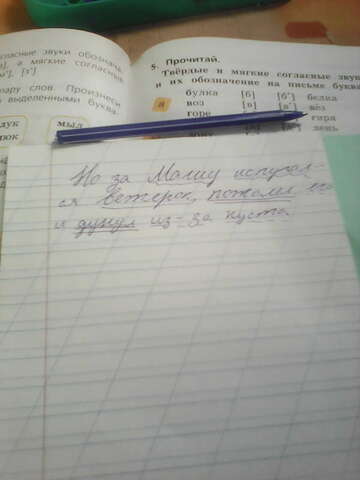 гласные звуки обознача
], а мягкие согласные
'], [з']
пару слов. Произнеси
выделенными буква
дук мыл
люк
5. Прочитай.
Твёрдые и мягкие согласные зву
и их обозначение на письме буква
булка [б] [б'] белка
а воз [в] [в'] вёз
горе гира
день
Но за Машу испугал-
ся ветерок, пожалел его
и дунул из-за куста.